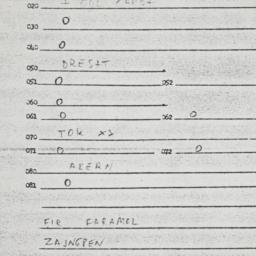 020
030 0
040 0
050 DRESAT
051 0 052
060 0
061 0 062 0
070 TOK X3
071 0 072 0
080 AKERN
081 0
FIR KARAMEL
ZAJNGPEN